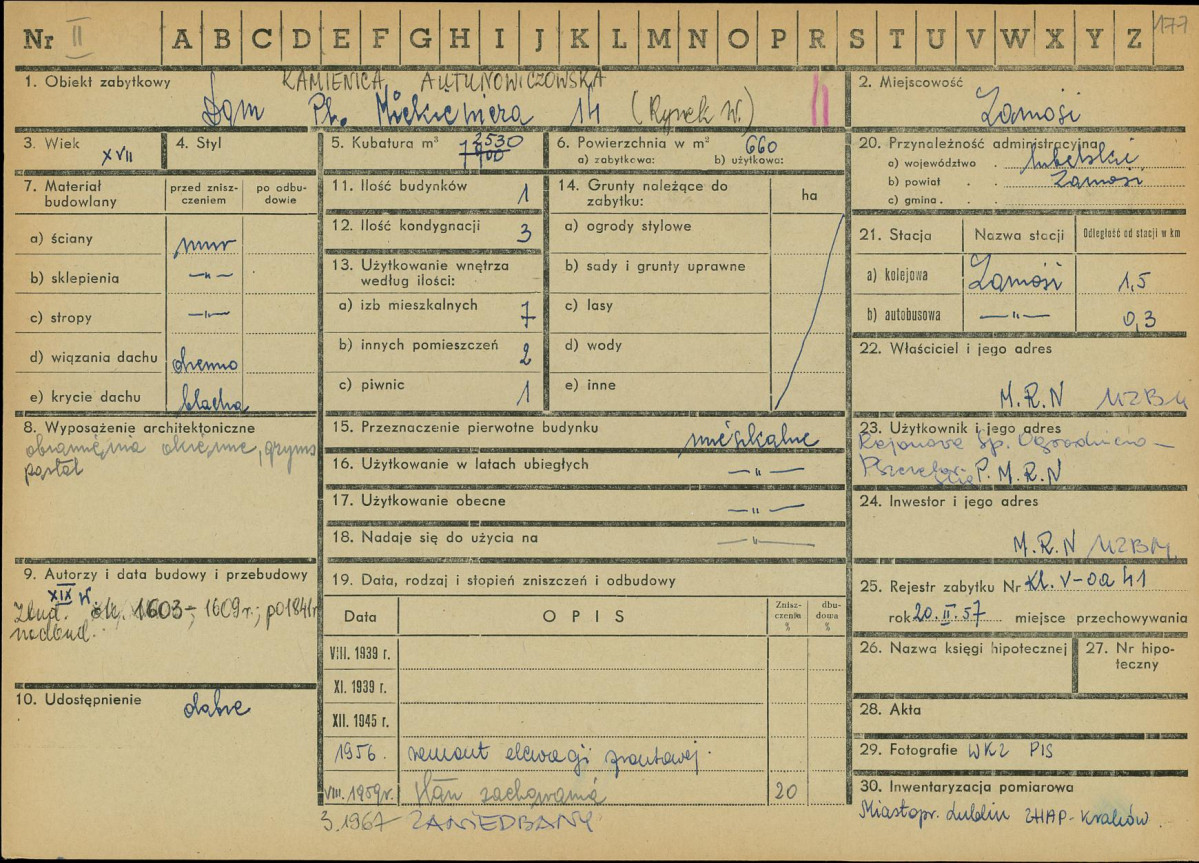 Nr II A B C D E F G H I J K L M N O P R S T U V W X Y Z 177
1. Obiekt zabytkowy KAMIENICA
Dom Pl. Mickiewicza 14 (Rynek W.)
2. Miejscowość
Zamość
3. Wiek XVII
4. Styl
5. Kubatura m³ 2530
6. Powierzchnia w m² 660
a) zabytkowa: b) użytkowa:
20. Przynależność administracyjna
a) województwo lubelskie
b) powiat Zamość
c) gmina
7. Materiał budowlany
przed zniszczeniem
po odbudowie
a) ściany mur
b) sklepienia —"—
c) stropy —"—
d) wiązania dachu drewno
e) krycie dachu blacha
11. Ilość budynków 1
12. Ilość kondygnacji 3
13. Użytkowanie wnętrza
według ilości:
a) izb mieszkalnych 7
b) innych pomieszczeń 2
c) piwnic 1
14. Grunty należące do
zabytku:
ha
a) ogrody stylowe
b) sady i grunty uprawne
c) lasy
d) wody
e) inne
21. Stacja Nazwa stacji Odległość od stacji w km
a) kolejowa Zamość 1,5
b) autobusowa —"— 0,3
22. Właściciel i jego adres
M.R.N MZBM
8. Wyposażenie architektoniczne
obramienia okienne, gzyms
portal
15. Przeznaczenie pierwotne budynku mieszkalne
16. Użytkowanie w latach ubiegłych —"—
17. Użytkowanie obecne —"—
18. Nadaje się do użycia na —"—
23. Użytkownik i jego adres
Rejonowa Sp. Ogrodniczo-
P.M.R.N
24. Inwestor i jego adres
M.R.N MZBM
9. Autorzy i data budowy i przebudowy
XIX w.
Zbud. 1603- 1609 r.; po 1841 r
nadbud.
10. Udostępnienie dobre
19. Data, rodzaj i stopień zniszczeń i odbudowy
Data OPIS Zniszczenia % dbudowa %
VIII. 1939 r.
XI. 1939 r.
XII. 1945 r.
1956. remont elewacji frontowej.
VIII. 1959 r. stan zachowania 20
3.1967 ZANIEDBANY
25. Rejestr zabytku Nr Kl. V-0a 41
rok 20.II.57 miejsce przechowywania
26. Nazwa księgi hipotecznej
27. Nr hipoteczny
28. Akta
29. Fotografie WKZ PIS
30. Inwentaryzacja pomiarowa
Miastopr. Lublin ZHAP-Kraków